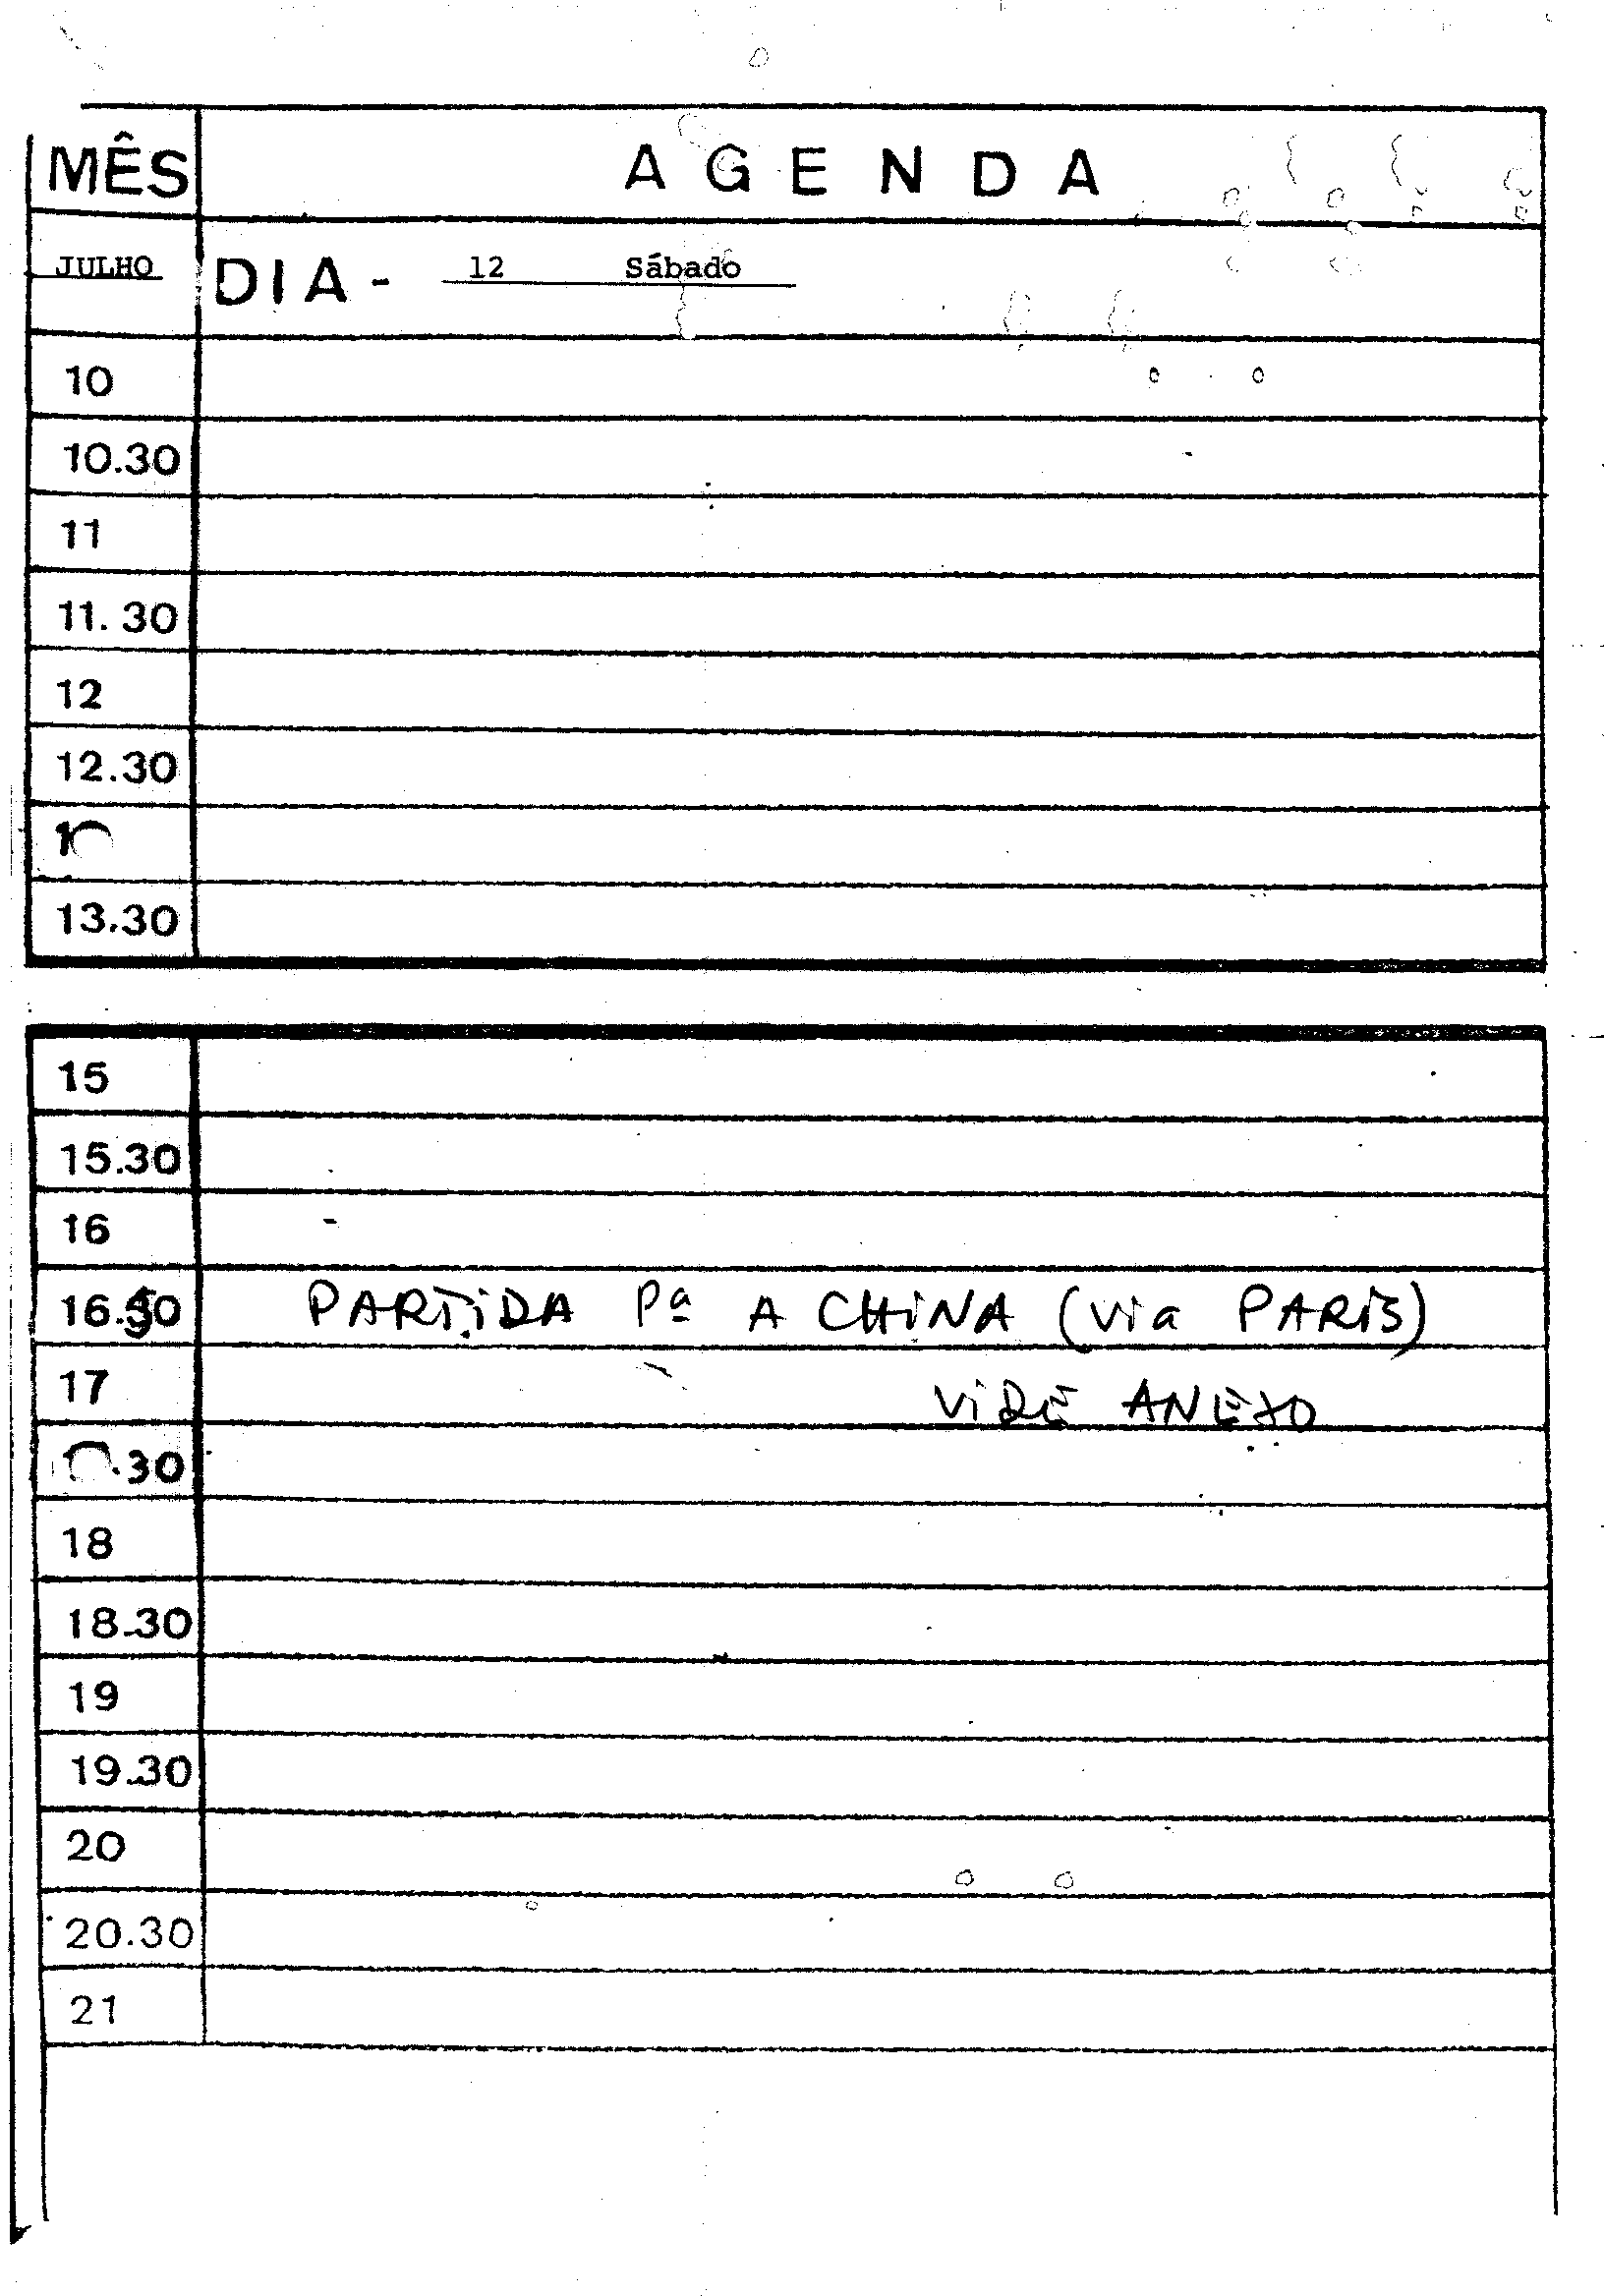 MÊS A G E N D A
JULHO DIA - 12 Sábado
10
10.30
11
11.30
12
12.30
13.30
15
15.30
16
16.50 PARTIDA Pª A CHINA (via PARIS)
17 VIDE ANEXO
.30
18
18.30
19
19.30
20
20.30
21